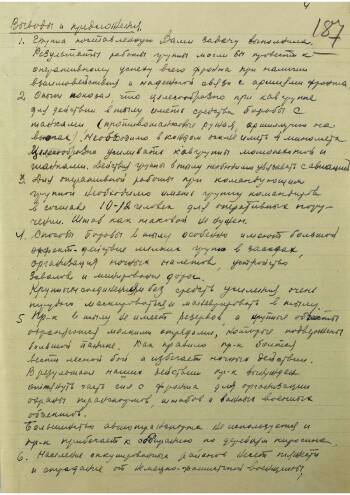 4
187
Выводы и предложения
1. Группа поставленную Вами задачу выполнила.
Результаты работы группы могли бы привести к
оперативному успеху всего фронта при наличии
взаимодействия и надежной связи с армиями фронта
2. Опыт показал, что целесообразно при кавгруппе
для действий в тылу иметь средства борьбы с
танками (противотанковые ружья,
вьюках). Необходимо в каждом иметь 4 миномета
целесообразно усиливать кавгруппы и
танками. Действия группы в тылу необходимо увязывать с авиацией
3. Для оперативной работы при командующем
группой необходимо иметь группу командиров
в составе 10-15 человек для оперативных пору-
чений. Штаб как таковой не нужен.
4. Способы борьбы в тылу особенно имеют большой
эффект - действие мелких групп в засадах,
организация ночных налетов, устройство
завалов и минирование дорог.
Крупным соединениям без средств усиления очень
трудно маскироваться и маневрировать в тылу.
5. Пр-к в тылу не имеет резервов, а крупные объекты
охраняются мелкими отрядами, которые подвержены
большой панике. Как правило пр-к боится
вести лесной бой и избегает ночных действий.
В результате наших действий пр-к вынужден
оттянуть часть сил с фронта для организации
охраны транспортов, штабов и важных военных
объектов.
Большинство автотранспорта не используется и
пр-к прибегает к
6. Население оккупированных районов
и от немецко-фашистской военщины,